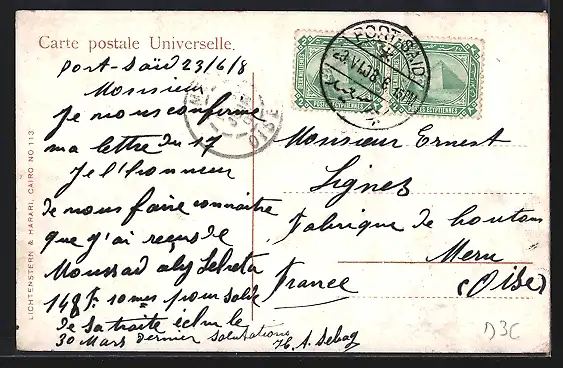 Carte postale Universelle.
Port-Saïd 23/6/8
Monsieur
Je vous confirme
ma lettre du 17
Je l'honneur
de vous faire connaître
que j'ai reçus de
Moussad aly
148 f. 10 mes pour solde
de sa traite échue le
30 Mars dernier salutations
A. Sebag
Monsieur Ernest
Lignez
Fabrique de boutons
Meru
(Oise)
France
PORT-SAID
POSTES EGYPTIENNES
POSTES EGYPTIENNES
OISE
LICHTENSTERN & HARARI, CAIRO NO 113
D3C